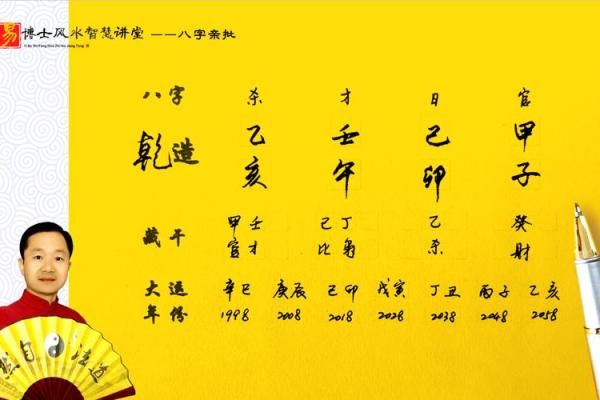 易 博士风水智慧讲堂 ——八字亲批
Yi Bo Shi Feng Shui Zhi Hui Jiang Tang
八字 杀 才 日 官
乾造
乙 壬 己 甲
亥 午 卯 子
藏干
甲壬 己丁 乙 癸
官才 比枭 杀 財
大運 辛巳 庚辰 己卯 戊寅 丁丑 丙子 乙亥
年份 1998 2008 2018 2028 2038 2048 2058
然自 法道